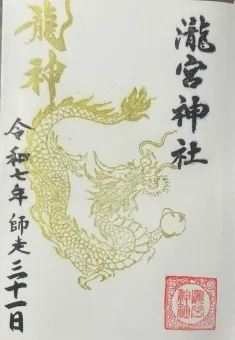 瀧宮神社
龍神
令和七年 師走 三十一日